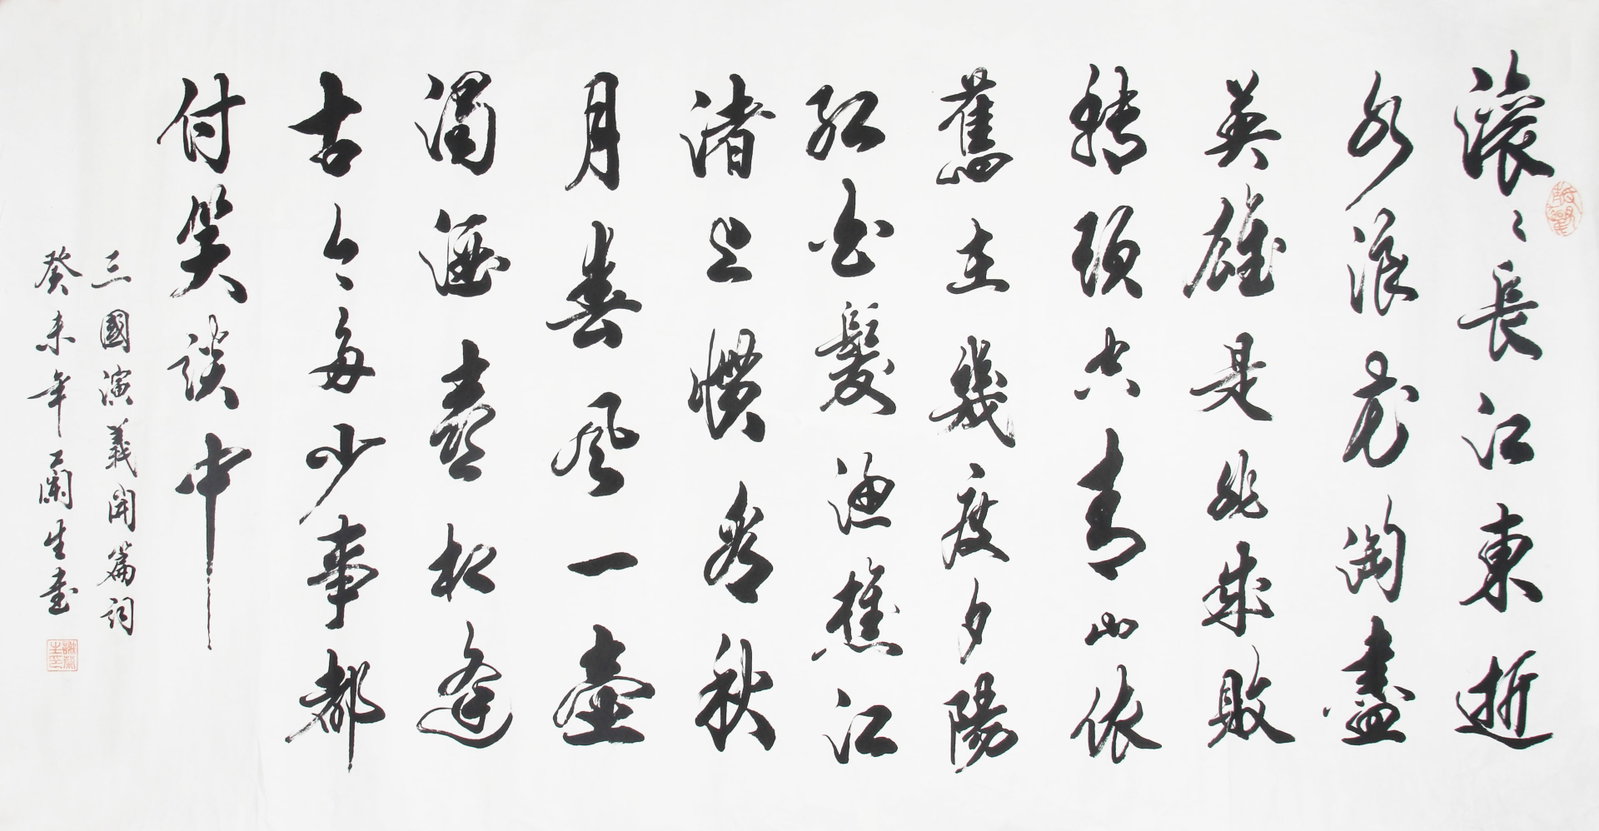 滾〻長江東逝
水浪花淘盡
英雄是非成敗
轉頭空青山依
舊在幾度夕陽
紅白髮漁樵江
渚上慣看秋
月春風一壺
濁酒喜相逢
古今多少事都
付笑談中
三國演義開篇詞
癸未年蘭生書